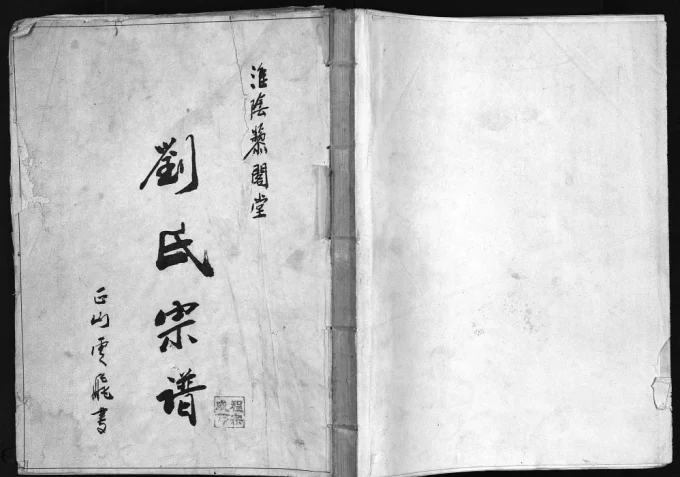 淮陰藜閣堂
劉氏宗谱
正山雲飛書